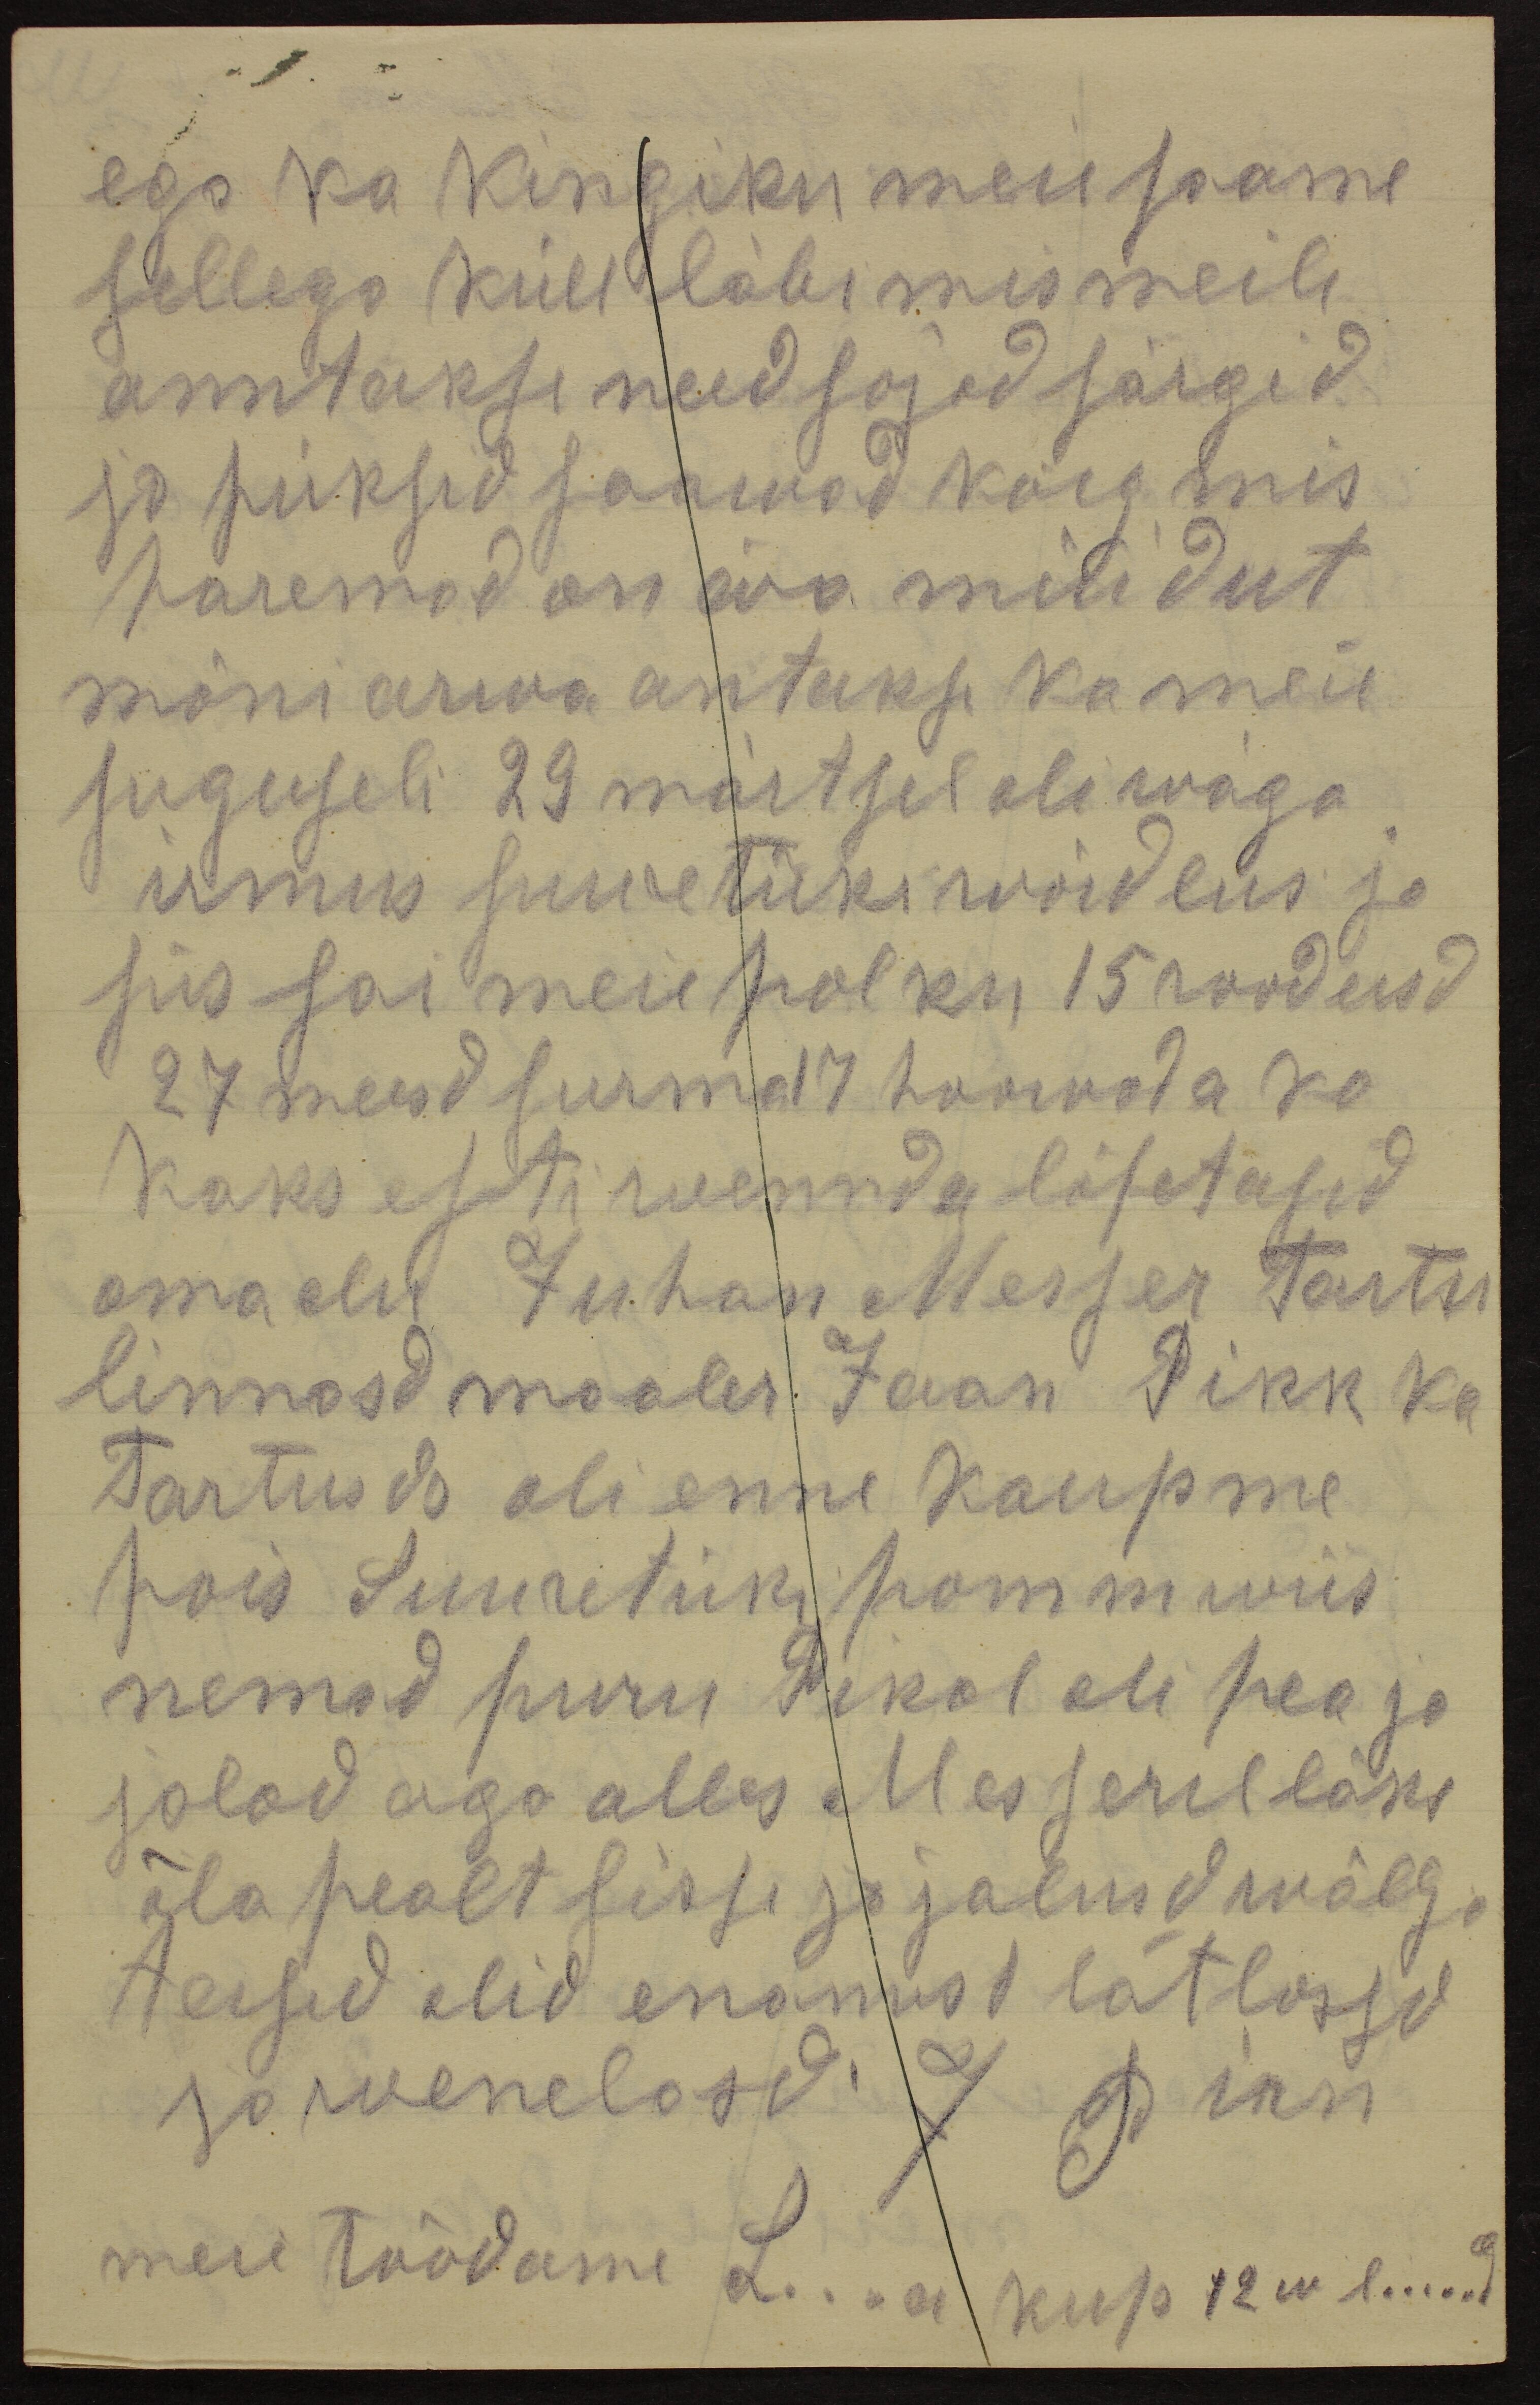 ega ka Kingiku meie saame
sellega küll läbi mis meile
anntakse need sojad särgid
ja püksid saawad kõig mis
paremad on äva müüdut
mõni arwa antakse ka meie
suguseli 29 märtsil oli wäga
irmus suuretüki wõidlus ja
siis sai meie polku 15 roodusd
27 meesd surma 17 haawada ka
kaks esti wennda lõsetasid
oma elu Juhan Messer Tartu
linnasd maaler Jaan Pikk ka
Tartusd oli enne kaupme
pois Suuretüki pomm wiis
nemad puru Pikal oli pea ja
jalad aga alles Messeril läks
õla pealt sisse ja jalusd wälga
teised olid enamast lätlased
ja wenelasd. J Pinn
meie töödame L....a kup 12 w l......d